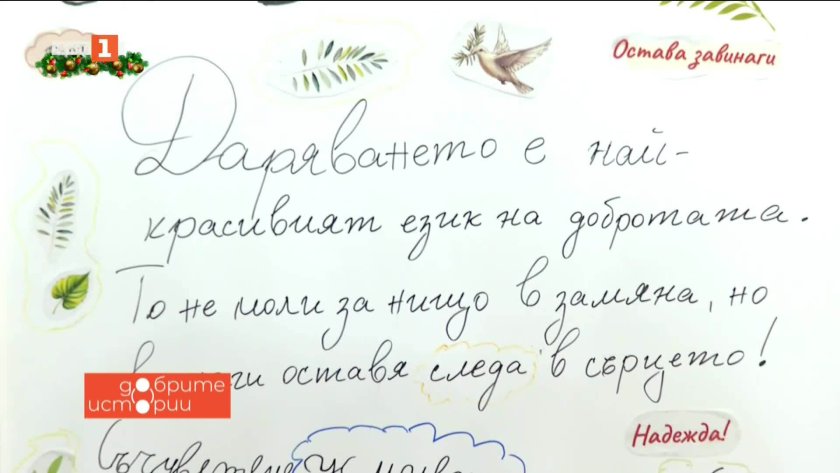 1
Остава завинаги
Даряването е най-
красивият език на добротата.
То не моли за нищо в замяна, но
оставя следа в сърцето!
добрите
истории
Надежда!